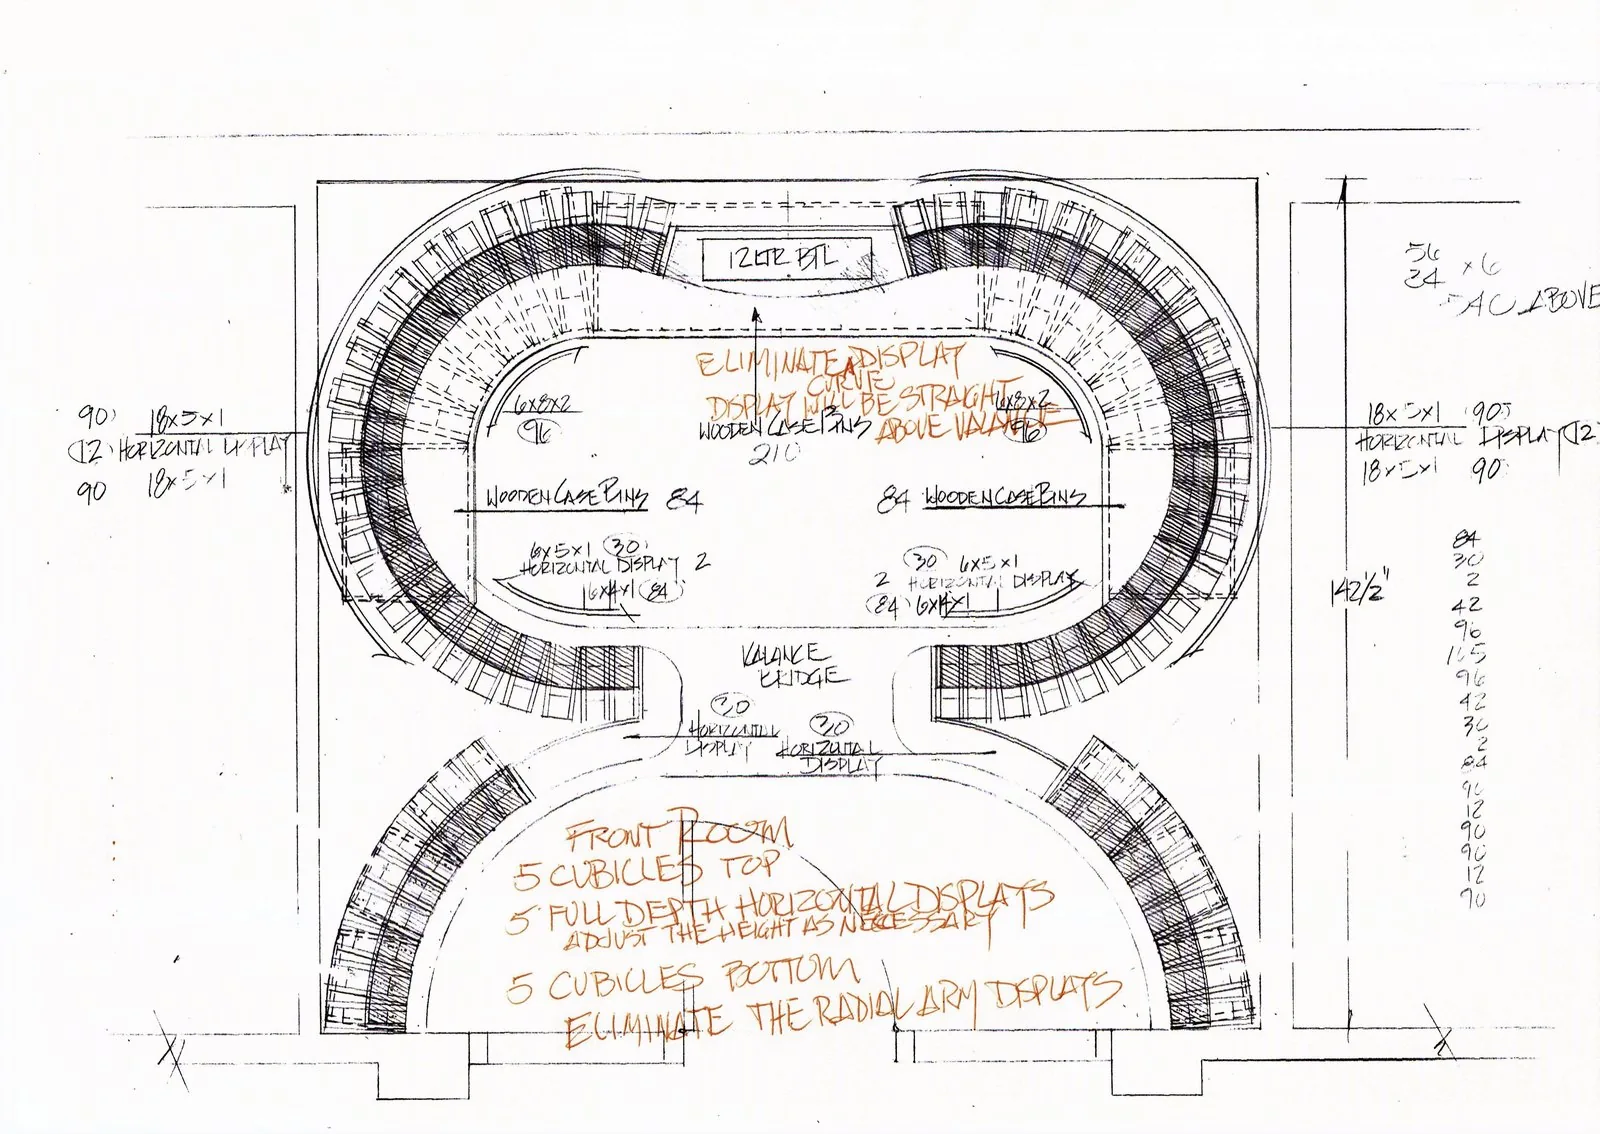 12 LTR BTL
56
34 x 6
ABOVE
ELIMINATE DISPLAY
CURVE
DISPLAY WILL BE STRAIGHT
ABOVE VALANCE
6x8x2
96
6x8x2
96
WOODEN CASE BINS
210
90
18x5x1
(12) HORIZONTAL DISPLAY
90 18x5x1
18x5x1 90
HORIZONTAL DISPLAY (12)
18x5x1 90
WOODEN CASE BINS 84
84 WOODEN CASE BINS
6x5x1 30
HORIZONTAL DISPLAY 2
6x14x1 84
30 6x5x1
2 HORIZONTAL DISPLAY
84 6x14x1
142 1/2"
84
30
2
42
96
96
42
30
2
84
12
90
90
12
90
VALANCE
BRIDGE
30
HORIZONTAL
DISPLAY
30
HORIZONTAL
DISPLAY
FRONT ROOM
5 CUBICLES TOP
5 FULL DEPTH HORIZONTAL DISPLAYS
ADJUST THE HEIGHT AS NECESSARY
5 CUBICLES BOTTOM
ELIMINATE THE RADIAL ARM DISPLAYS